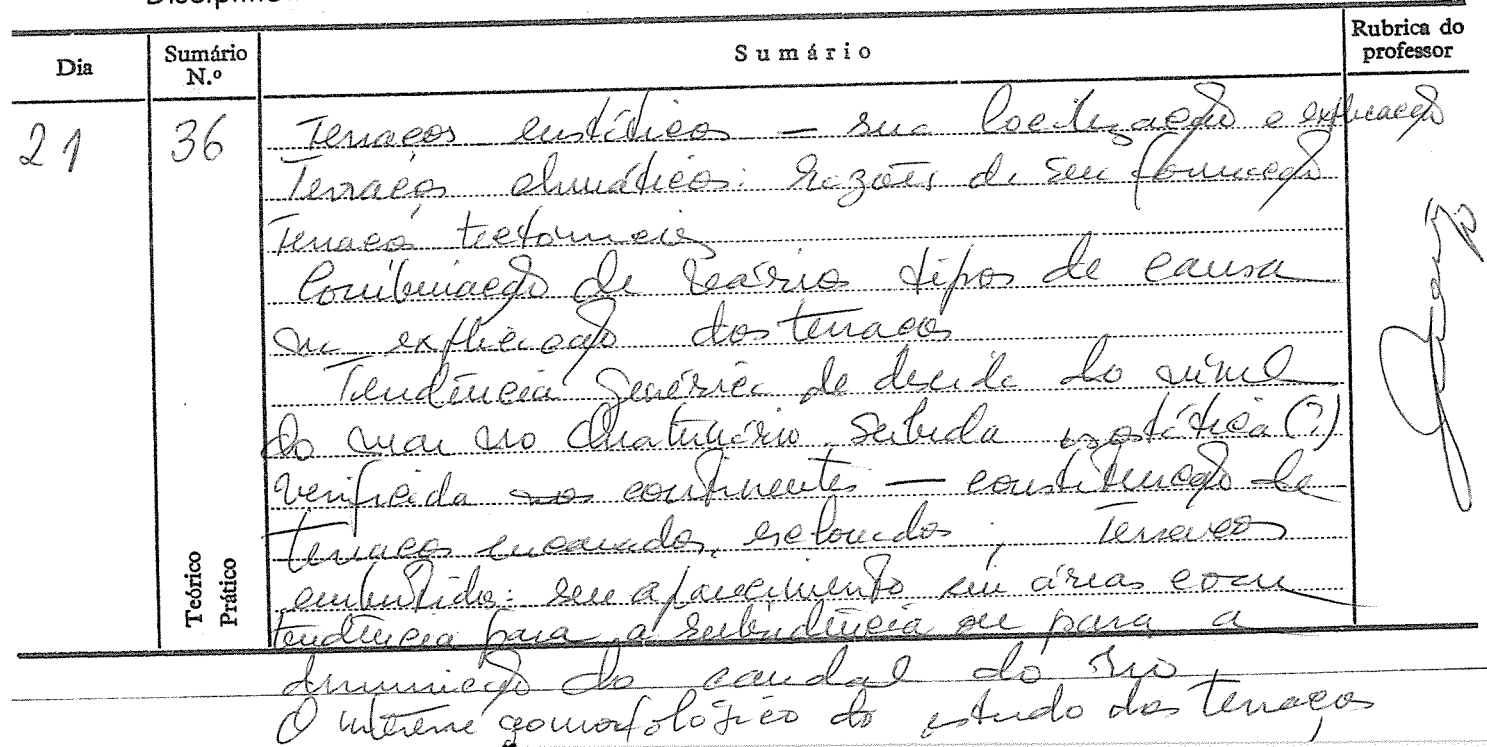 Dia
Sumário N.º
Sumário
Rubrica do professor
21
36
Terraços eustáticos — sua localização e explicação
Terraços climáticos: razões da sua formação
Terraços tectónicos
Combinação de vários tipos de causa
na explicação dos terraços
Tendência genérica de descida do nível
do mar no Quaternário, subida isostática (?)
verificada nos continentes — constituição de
terraços escalonados; Terraços
embutidos: seu aparecimento em áreas com
tendência para a subsidência ou para a
diminuição do caudal do rio
O interesse geomorfológico do estudo dos terraços
Teórico
Prático